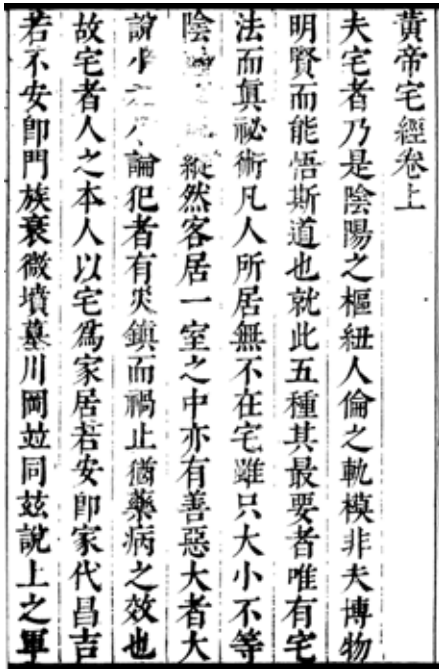 黃帝宅經卷上
夫宅者乃是陰陽之樞紐人倫之軌模非夫博物
明賢而能悟斯道也就此五種其最要者唯有宅
法而眞祕術凡人所居無不在宅雖只大小不等
陰縱然客居一室之中亦有善惡大者大
說小論犯者有灾鎮而禍止猶藥病之效也
故宅者人之本人以宅爲家居若安卽家代昌吉
若不安卽門族衰微墳墓川岡竝同玆說上之軍